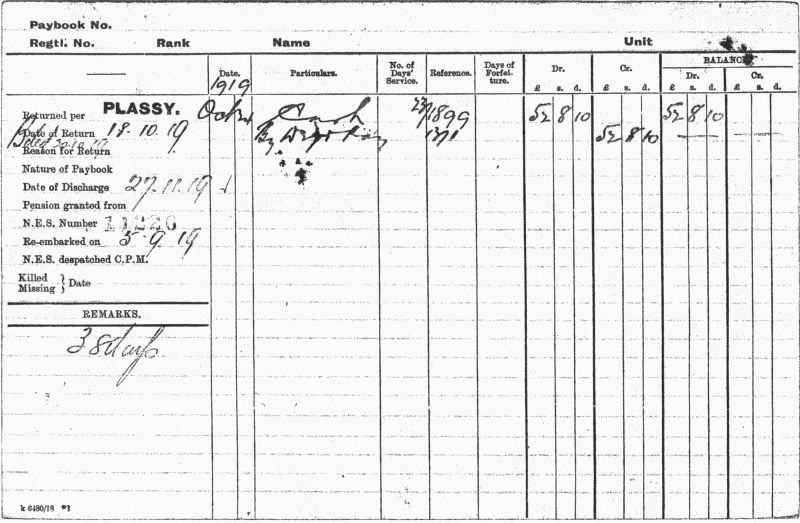 Paybook No.
Regtl. No. Rank Name Unit
Date. Particulars. No. of Days' Service. Reference. Days of Forfeiture. Dr. Cr. BALANCE
Dr. Cr.
£ s. d. £ s. d. £ s. d. £ s. d.
1919
Returned per PLASSY. Cash 1899 52 8 10 52 8 10
Date of Return 18.10.19 By 52 8 10
Reason for Return
Nature of Paybook
Date of Discharge 27.11.19
Pension granted from
N.E.S. Number 11226
Re-embarked on 5.9.19
N.E.S. despatched C.P.M.
Killed
Missing } Date
REMARKS.
38 days
k 6480/18